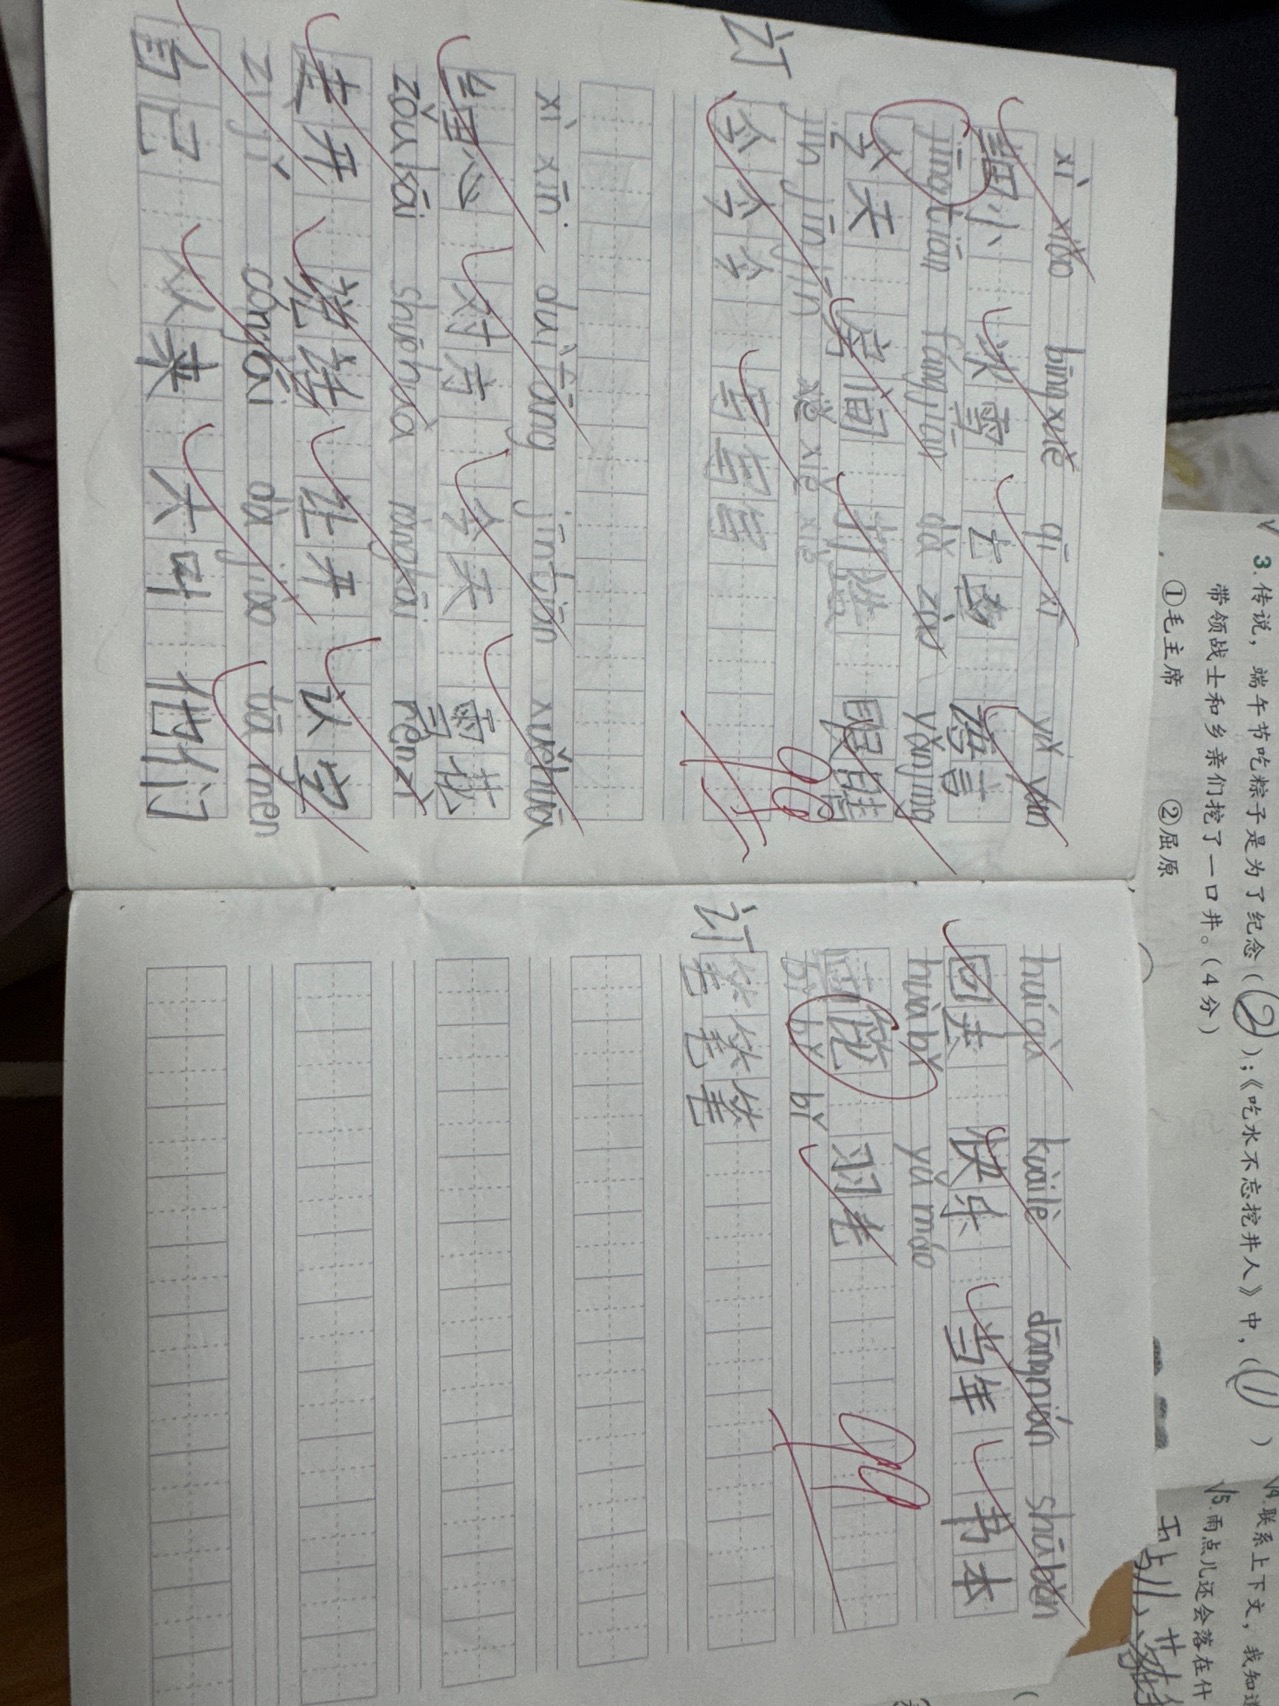 xì xiǎo bīngxuě qī xì yǔ yán
细小 冰雪 七 语言
jīngtiān fángjiān dǎ zào yǎnjing
今天 房间 打造 眼睛
jīn jīn jīn xiě xiě xiě
订 今今今 写写写
96
xì xīn duì fāng jīntiān xuěhuā
细心 对方 今天 雪花
zǒu kāi shuōhuà ràngkāi rènzì
走开 说话 让开 认字
zì jǐ cónglái dà jiào tā men
自己 从来 大叫 他们
huíqù kuàilè dāngnián shūběn
回去 快乐 当年 书本
huàbǐ yǔ máo
画 羽毛
bǐ bǐ bǐ
订 笔笔笔
99
3. 传说，端午节吃粽子是为了纪念（②）；《吃水不忘挖井人》中，（①）
带领战士和乡亲们挖了一口井。（4分）
①毛主席 ②屈原
√4. 联系上下文，我知道
√5. 雨点儿还会落在什